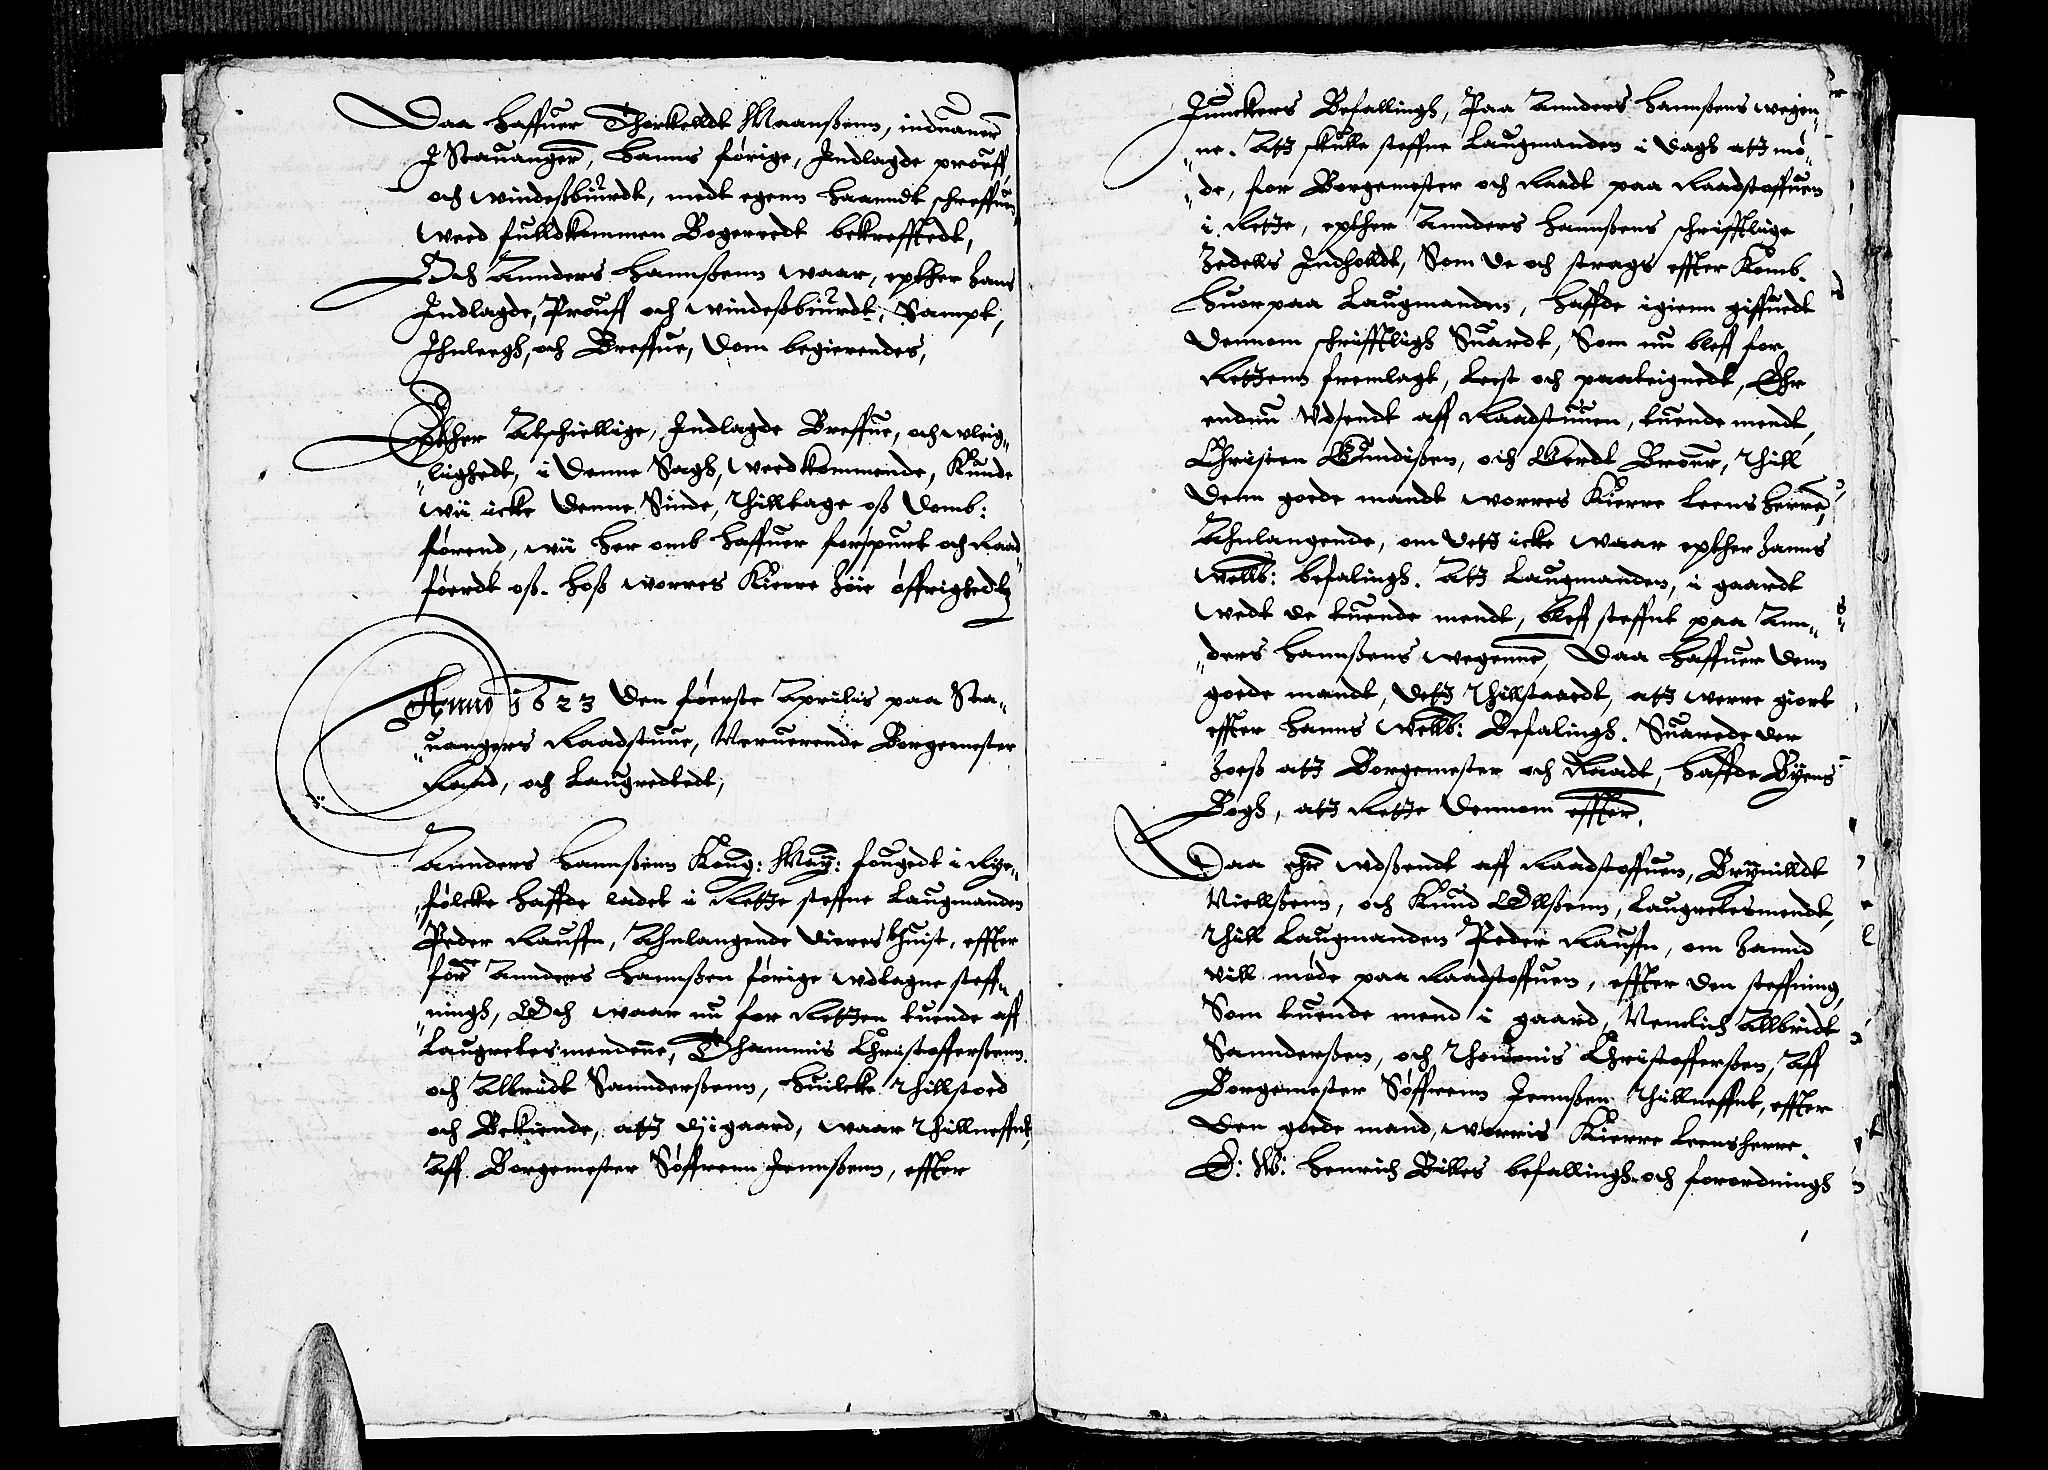 Daa haffuer Thorkelldt Maanßenn, induaaner
I Stauanger, hanns förige, Indlagde prouff
och windeßbiurdt, medt egenn haanndt schreffuen
weed fulldkommen Bogerredt bekrefftedt,
Och Annders Hannßenn waar, epther hans
Indlagde, Prouff och windeßbiurdt, Sampt,
Ihnlegh, och Breffue, Dom begierendes,
Epther Atschiellige, Indlagde Breffue, och wleig„
„lighedt, i denne Sagh, weedkommende, Kunde
wii icke denne Sinde, thilltage oß domb:
förend, wii her omb haffuer forspurt och Raad„
föerdt oß. hoß worres Kierre höie öffrighedt
Anno 1623 den föerste Aprilis paa Sta„
„uangers Raadstuue, Neruerende Borgemester
Raad, och Laugrettedt,
Annders Hannßenn Kong: May: fougedt i Rye„
„fölcke haffde ladet i Retze steffne Laugmanden
Peder Kauffn, Ahnlangende dieres thuist, effter
for Annders Hannßen förige wdlagne steff„
„ningh, Och waar nu for Retzen tuende aff
Laugretes mendene, Thammis Christofferßenn.
och Albridt Saunderßenn, huilcke thillstoed
och Bekiende, atz dj igaard, waar thillneffnt,
Aff Borgemester Söffrenn Jennßenn, effter
Junckers Befallingh, Paa Annders Hannßens wegen„
„ne. Atz skulle steffne Laugmanden i dagh atz mö„
„de, for Borgemester och Raadt paa Raadstoffuen
i Retze, epther Annders Hannßens schrifftlige
Zedells Indholldt, Som de och strags effter Komb.
Huorpaa Laugmanden, haffde igienn giffuedt
dennom schrifftligh Suardt, Som nu bleff for
Retzenn fremlagt, Lest och paateignedt, Ehr
endnu Wdsendt aff Raadstuuen, tuende mendt,
Christen Gundißen, och Gerdt Broun, thill
denn goede mandt worres Kierre Leens herre,
Ahnlangende, om detz icke waar epther hanns
Wellb: befalingh. Atz Laugmanden, i gaardt
wedt de tuende mendt, bleff steffnt paa Ann„
„ders Hannßens wegenne, Daa haffuer denn
goede mandt, detz thillstaaedt, atz werre giort
effter hanns Wellb: Befalingh. Suarede der
hoeß atz Borgemester och Raadt, haffde Byens
Bogh, atz Retze dennom effter.
Daa ehr wdßendt aff Raadstoffuen, Brynilldt
Niellßenn, och Knud Ollßenn, Laugretesmendt,
thill Laugmanden Peder Kauffn, om hannd
vill möde paa Raadstoffuen, effter den steffning,
Som tuende mend i gaard, Nemlich Allbridt
Saunderßen, och Thommis Christofferßen, Aff
Borgemester Söffrenn Jennßen thillneffnt, effter
den goede mand, worris Kierre Leensherre.
E: W: Henrich Billes befallingh och forordningh